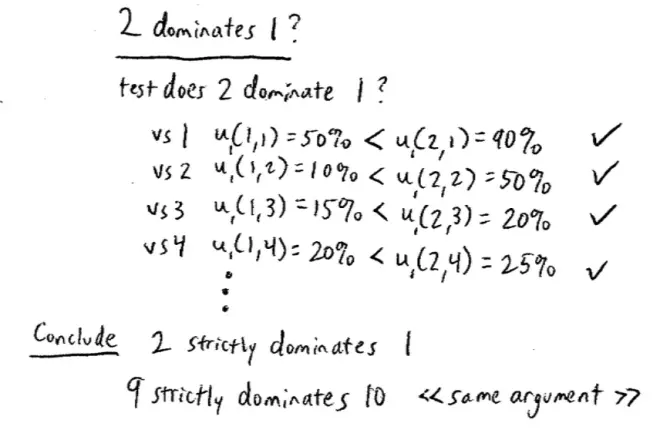 2 dominates 1 ?
test does 2 dominate 1 ?
vs 1 u₁(1,1) = 50% < u₁(2,1) = 90% ✓
vs 2 u₁(1,2) = 10% < u₁(2,2) = 50% ✓
vs 3 u₁(1,3) = 15% < u₁(2,3) = 20% ✓
vs 4 u₁(1,4) = 20% < u₁(2,4) = 25% ✓
⋮
Conclude 2 strictly dominates 1
9 strictly dominates 10 << same argument >>